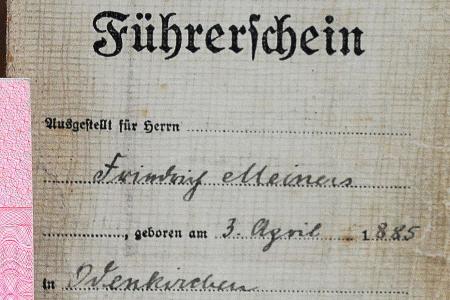 Führerschein
Ausgestellt für Herrn
Friedrich Meiners
, geboren am 3. April 1885
in Odenkirchen